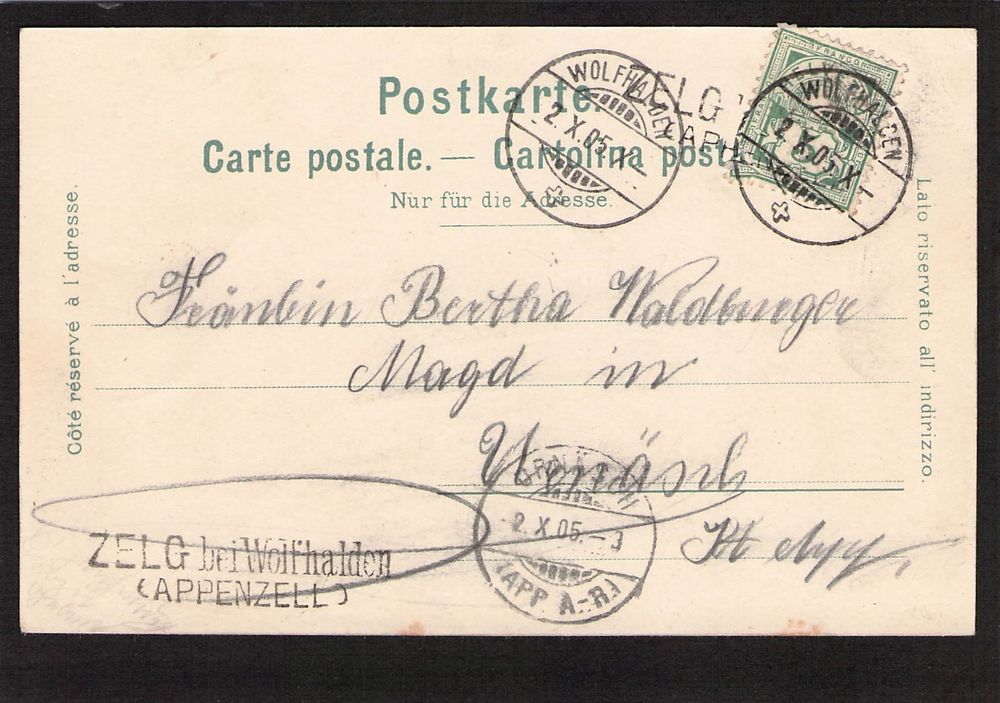 Postkarte.
Carte postale. — Cartolina post
Nur für die Adresse.
Côté réservé à l'adresse.
Lato riservato all' indirizzo.
WOLFHALDEN
2.X.05.X
ZELG
WOLFHALDEN
2.X.05.X
FRANCO
Fräulein Bertha Waldburger
Magd in
Urnäsch
Kt App.
2.X.05.
(APP. A-R.)
ZELG bei Wolfhalden
(APPENZELL)